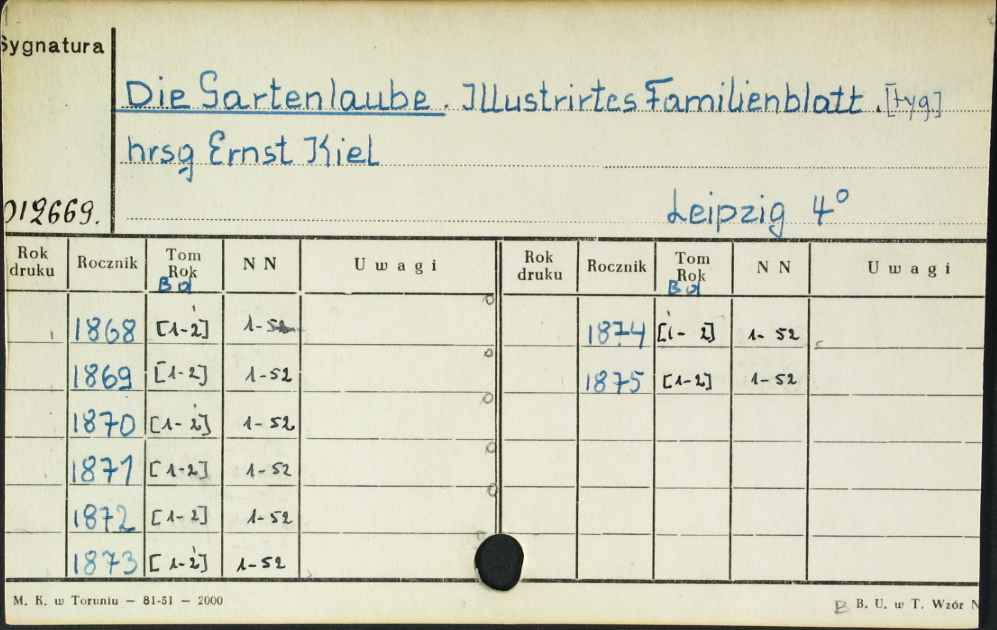 Sygnatura
Die Gartenlaube. Illustrirtes Familienblatt. [tyg]
hrsg Ernst Kiel
012669.
Leipzig 4°
Rok druku Rocznik Tom Rok Bd NN Uwagi Rok druku Rocznik Tom Rok Bd NN Uwagi
1868 [1-2] 1-52 1874 [1-2] 1-52
1869 [1-2] 1-52 1875 [1-2] 1-52
1870 [1-2] 1-52
1871 [1-2] 1-52
1872 [1-2] 1-52
1873 [1-2] 1-52
M. K. w Toruniu — 81-51 — 2000 B B. U. w T. Wzór N